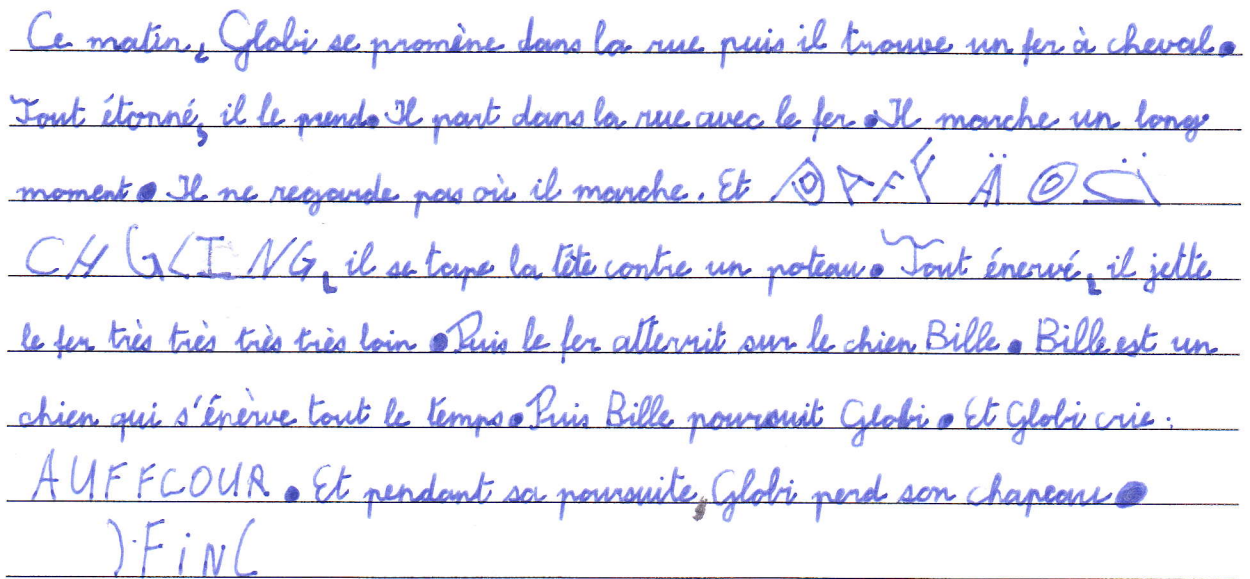 Ce matin, Globi se promène dans la rue puis il trouve un fer à cheval.
Tout étonné, il le prend. Il part dans la rue avec le fer. Il marche un long
moment. Il ne regarde pas où il marche. Et
CH GLING, il se tape la tête contre un poteau. Tout énervé, il jette
le fer très très très très loin. Puis le fer atterrit sur le chien Bille. Bille est un
chien qui s'énèrve tout le temps. Puis Bille poursuit Globi. Et Globi crie :
AUFFCOUR. Et pendant sa poursuite, Globi perd son chapeau.
).FiN(